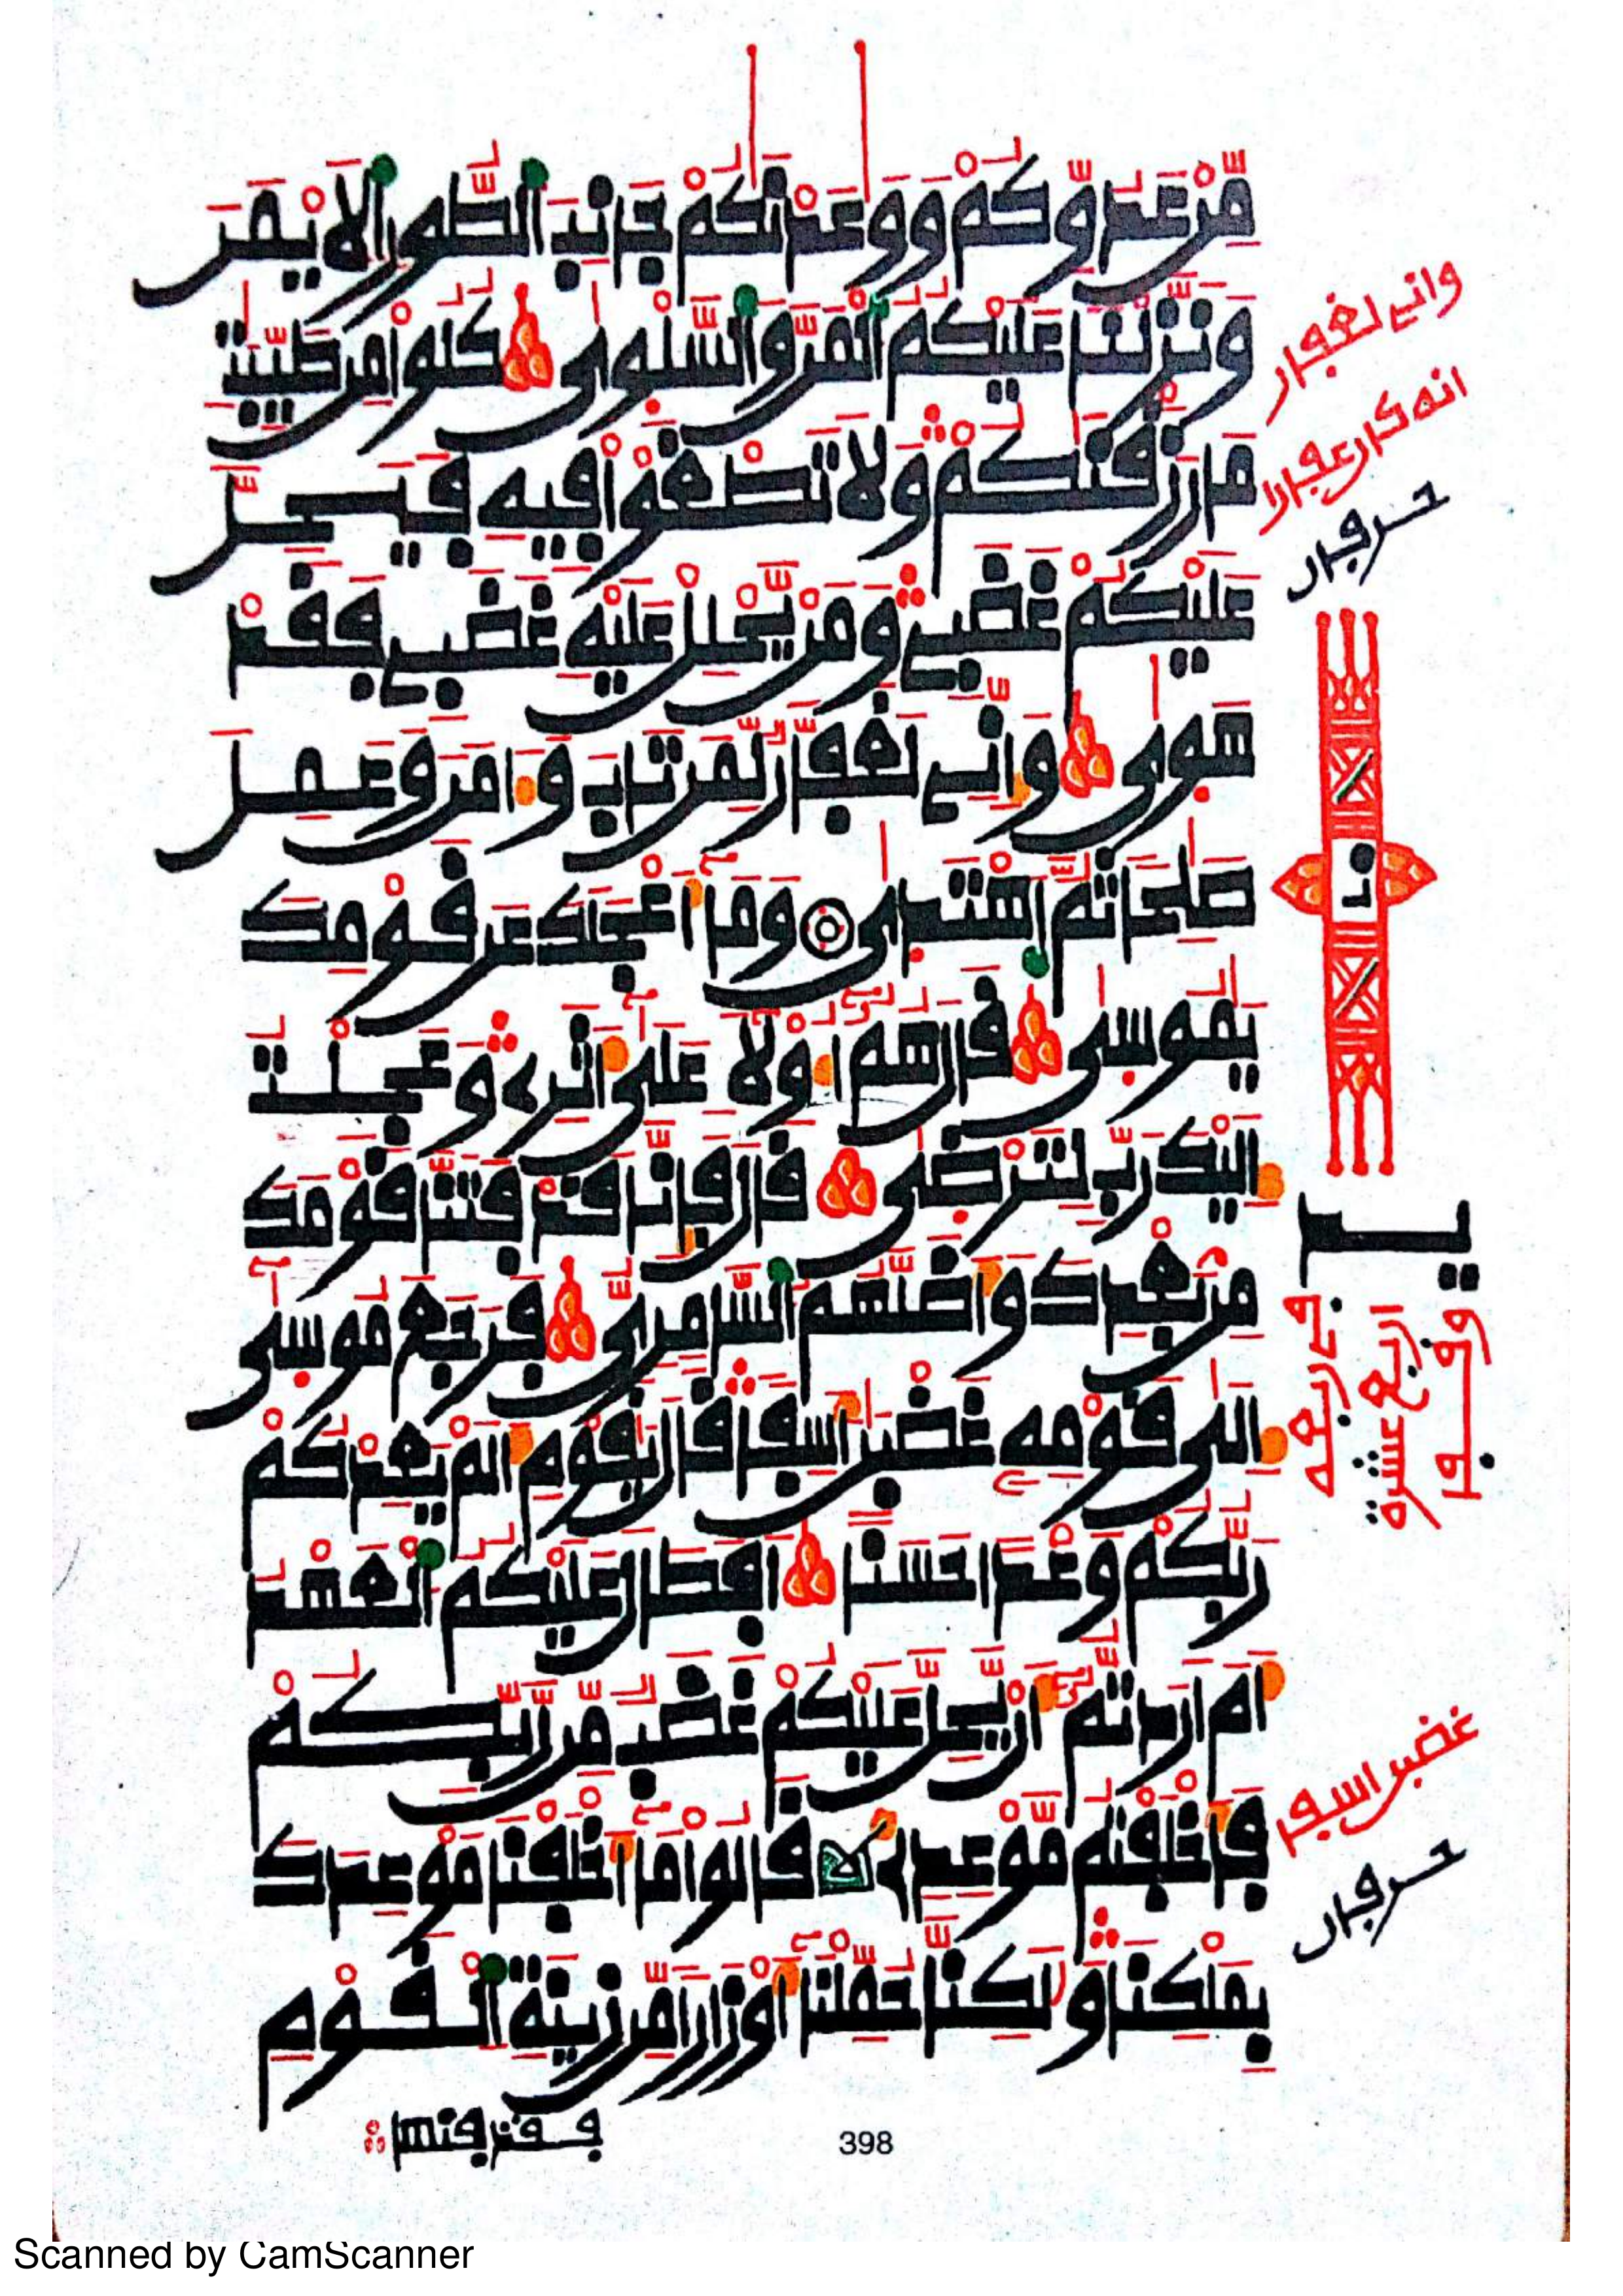 مِّنْ عَدُوِّكُمْ وَوَٰعَدْنَٰكُمْ جَانِبَ ٱلطُّورِ ٱلَايْمَنَ
وَنَزَّلْنَا عَلَيْكُمُ ٱلْمَنَّ وَٱلسَّلْوٜىٰ كُلُوا مِن طَيِّبَٰتِ
مَا رَزَقْنَٰكُمْ وَلَا تَطْغَوْا فِيهِ فَيَحِلَّ
عَلَيْكُمْ غَضَبِي وَمَنْ يَّحْلِلْ عَلَيْهِ غَضَبِي فَقَدْ
هَوٜىٰ وَإِنِّي لَغَفَّارٌ لِّمَن تَابَ وَءَامَنَ وَعَمِلَ
صَٰلِحًا ثُمَّ ٱهْتَدٜىٰ وَمَآ أَعْجَلَكَ عَن قَوْمِكَ
يَٰمُوسٜىٰ قَالَ هُمُ أُولَآءِ عَلَىٰٓ أَثَرِي وَعَجِلْتُ
إِلَيْكَ رَبِّ لِتَرْضٜىٰ قَالَ فَإِنَّا قَدْ فَتَنَّا قَوْمَكَ
مِنۢ بَعْدِكَ وَأَضَلَّهُمُ ٱلسَّامِرِيُّ فَرَجَعَ مُوسٜىٰٓ
إِلَىٰ قَوْمِهِ غَضْبَٰنَ أَسِفًا قَالَ يَٰقَوْمِ أَلَمْ يَعِدْكُمْ
رَبُّكُمْ وَعْدًا حَسَنًا أَفَطَالَ عَلَيْكُمُ ٱلْعَهْدُ
أَمَ أَرَدتُّمُ أَنْ يَّحِلَّ عَلَيْكُمْ غَضَبٌ مِّن رَّبِّكُمْ
فَأَخْلَفْتُم مَّوْعِدِي قَالُوا مَآ أَخْلَفْنَا مَوْعِدَكَ
بِمَلْكِنَا وَلَٰكِنَّا حُمِّلْنَآ أَوْزَارًا مِّن زِينَةِ ٱلْقَوْمِ
فقذفنها
398
واني لغفار
انه كان غفارا
حرفان
يد
اربع عشرة
غضبن اسفا
حرفان
Scanned by CamScanner